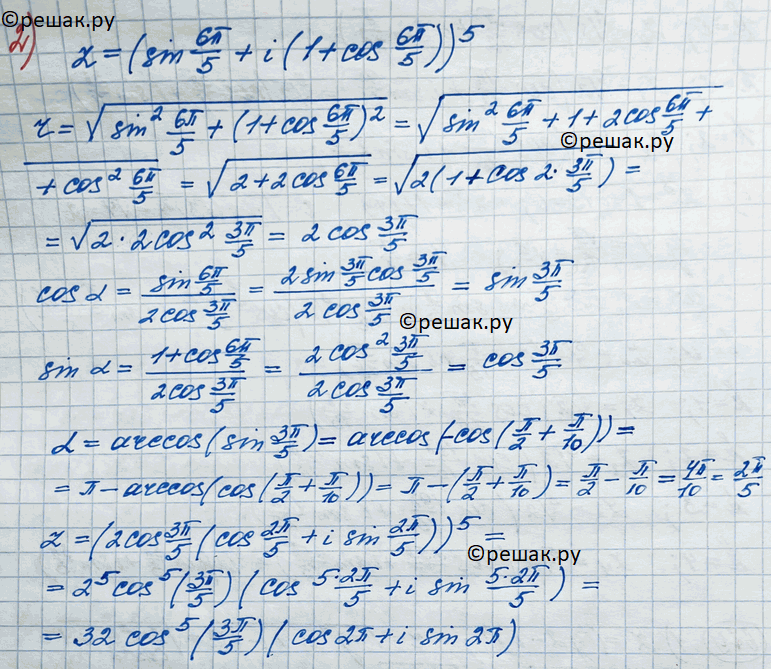 ©решак.ру
2) z = (sin 6π/5 + i(1 + cos 6π/5))^5
r = √(sin² 6π/5 + (1 + cos 6π/5)²) = √(sin² 6π/5 + 1 + 2cos 6π/5 +
©решак.ру
+ cos² 6π/5) = √(2 + 2cos 6π/5) = √(2(1 + cos 2 · 3π/5)) =
= √(2 · 2cos² 3π/5) = 2 cos 3π/5
cos α = sin 6π/5 / 2cos 3π/5 = 2 sin 3π/5 cos 3π/5 / 2 cos 3π/5 = sin 3π/5
©решак.ру
sin α = 1 + cos 6π/5 / 2cos 3π/5 = 2 cos² 3π/5 / 2cos 3π/5 = cos 3π/5
α = arccos(sin 3π/5) = arccos(-cos(π/2 + π/10)) =
= π - arccos(cos(π/2 + π/10)) = π - (π/2 + π/10) = π/2 - π/10 = 4π/10 = 2π/5
z = (2cos 3π/5 (cos 2π/5 + i sin 2π/5))^5 =
©решак.ру
= 2^5 cos^5 (3π/5) (cos 5·2π/5 + i sin 5·2π/5) =
= 32 cos^5 (3π/5) (cos 2π + i sin 2π)